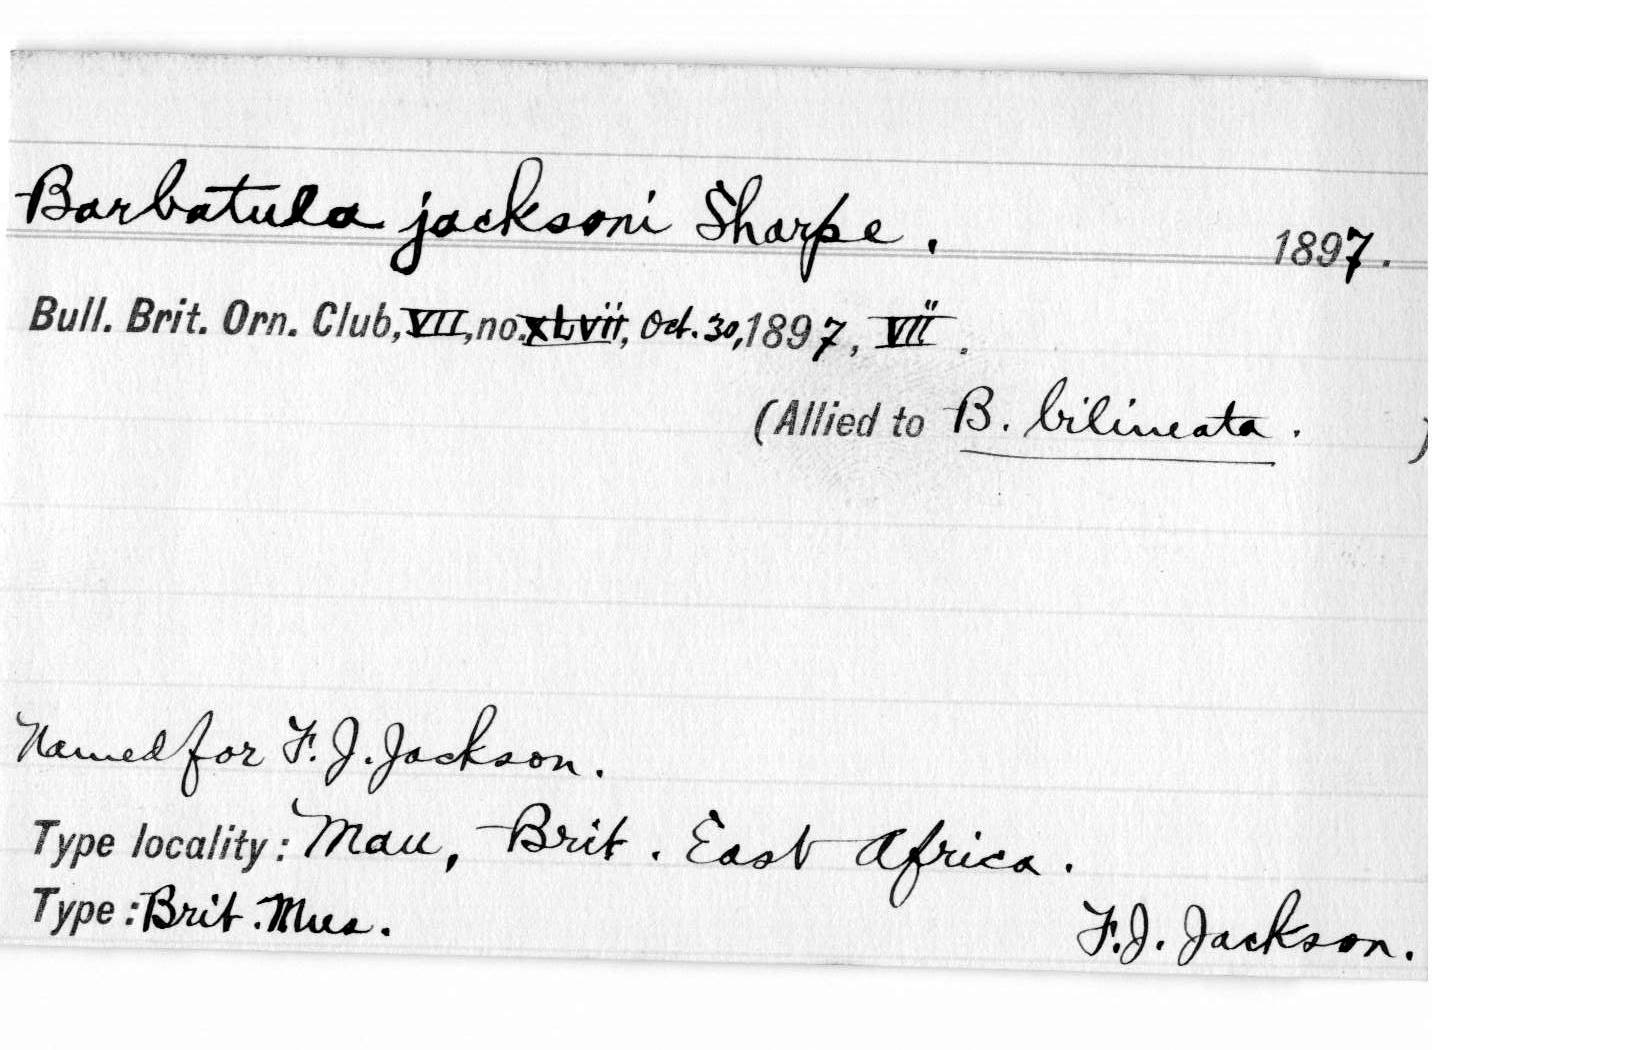 Barbatula jacksoni Sharpe. 1897.
Bull. Brit. Orn. Club, VII, no. XLvii, Oct. 30, 1897, VII.
(Allied to B. bilineata. )
Named for F. J. Jackson.
Type locality: Mau, Brit. East Africa.
Type: Brit. Mus. F. J. Jackson.